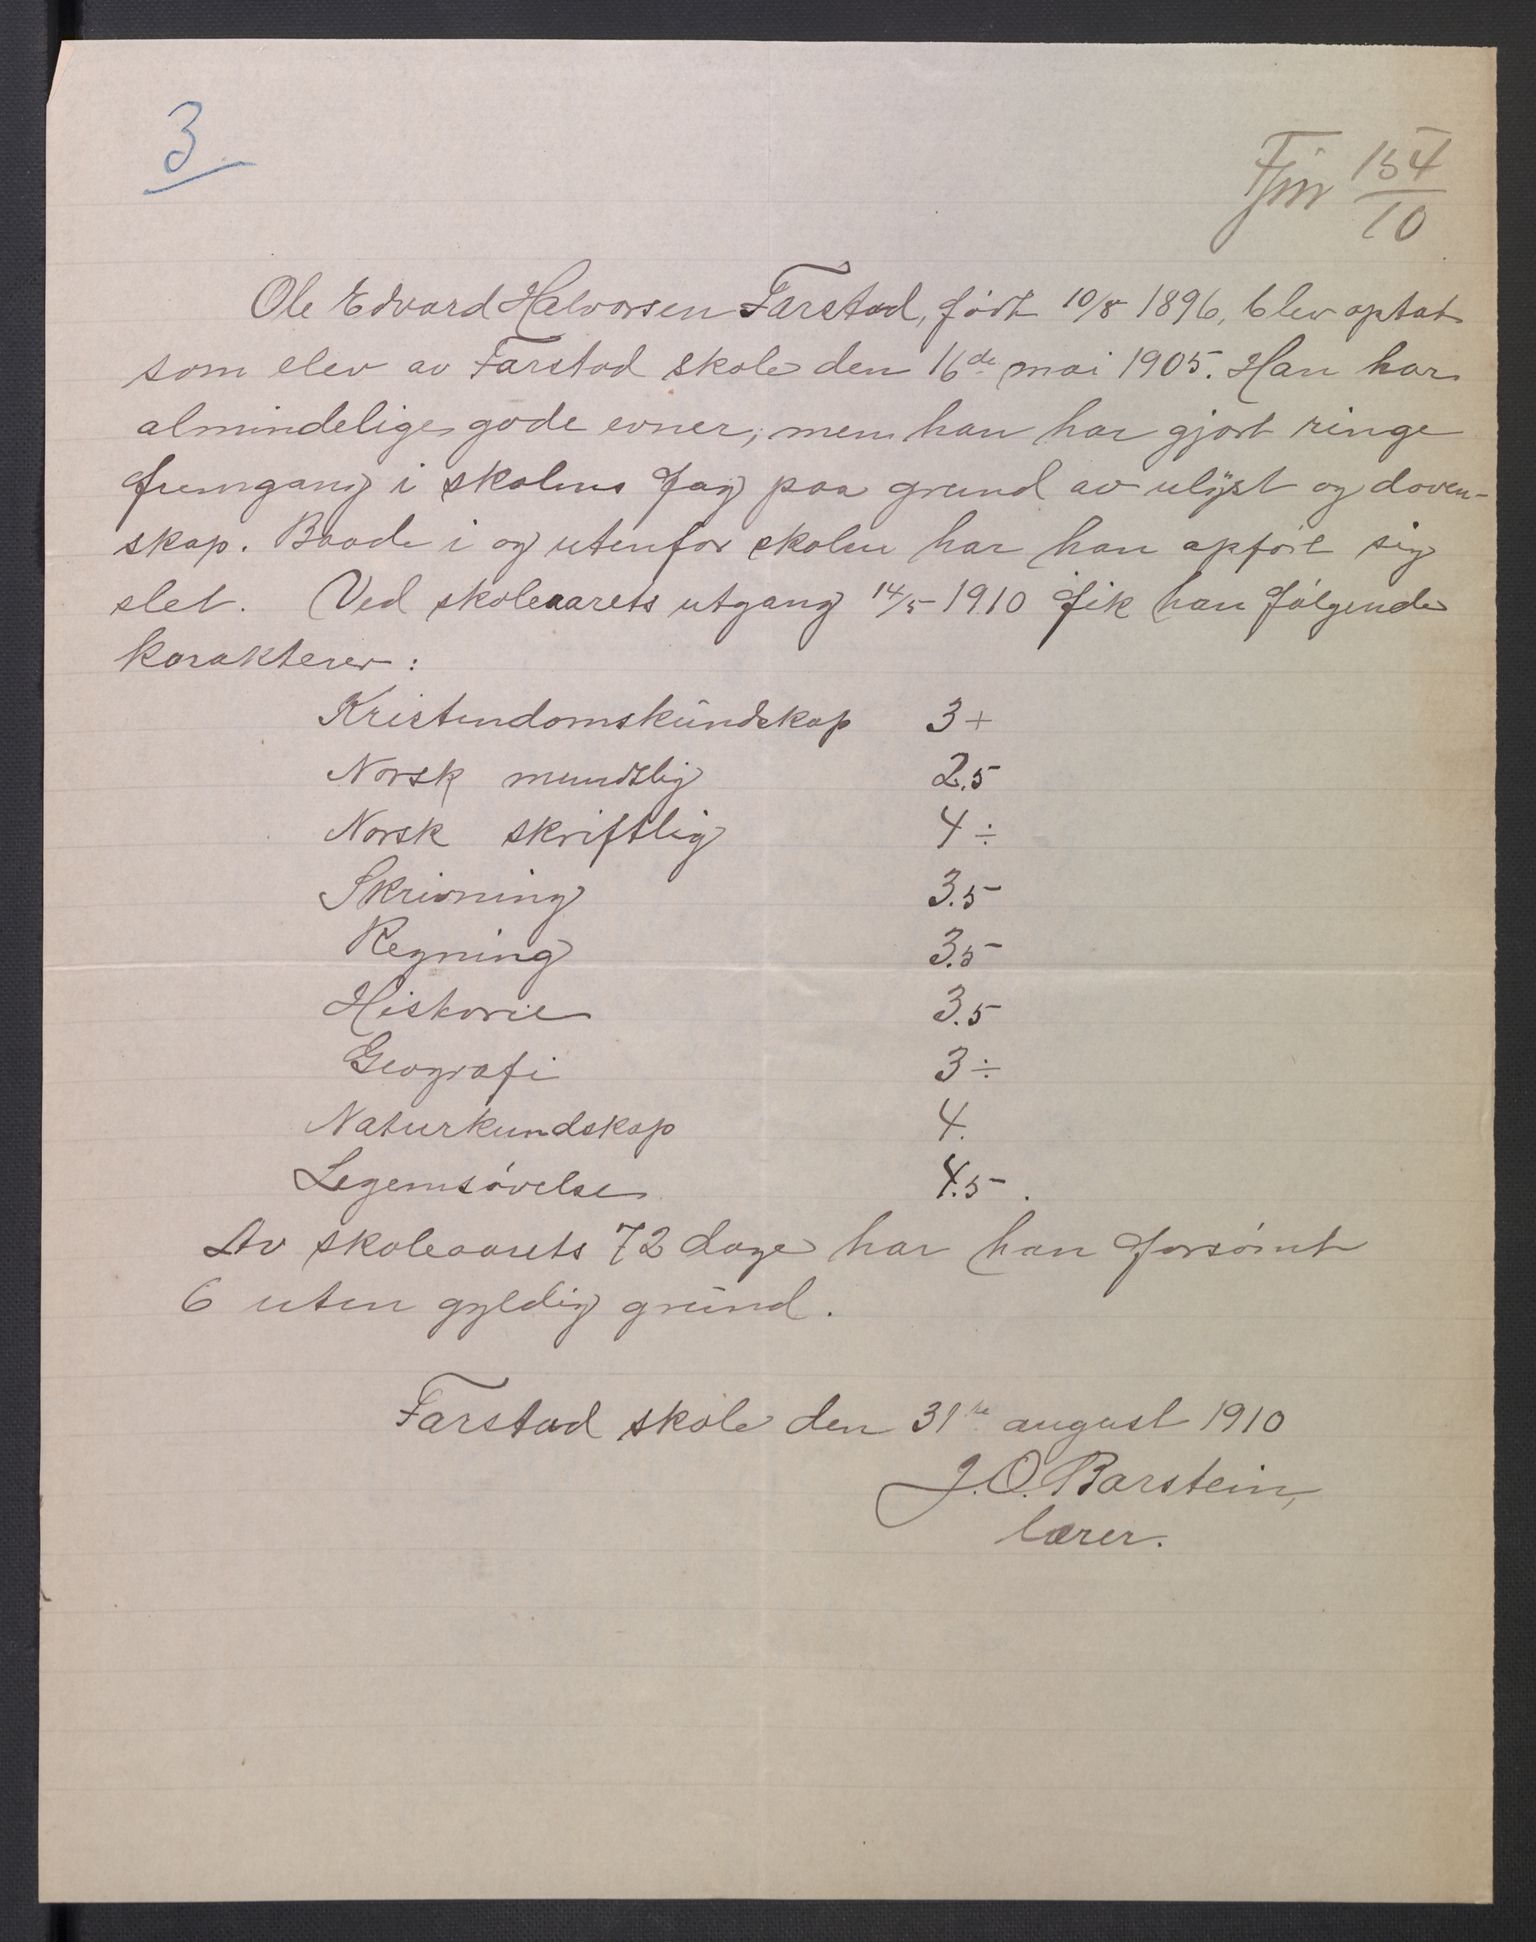 3
154
10
Ole Edvard Halvorsen Farstad, født 10/8 1896, blev optat
som elev av Farstad skole den 16de mai 1905. Han har
almindelige gode evner, men han har gjort ringe
fremgang i skolens fag paa grund av ulyst og doven-
skap. Baade i og utenfor skolen har han opført sig
slet. Ved skoleaarets utgang 14/5 1910 fik han følgende
karakterer:
Kristendomskundskap 3+
Norsk mundtlig 2.5
Norsk skriftlig 4÷
Skrivning 3.5
Regning 3.5
Historie 3.5
Geografi 3÷
Naturkundskap 4.
Legemsøvelse 4.5.
Av skoleaarets 72 dage har han forsømt
6 uten gyldig grund.
Farstad skole den 31te august 1910
J. O. Barstein,
lærer.